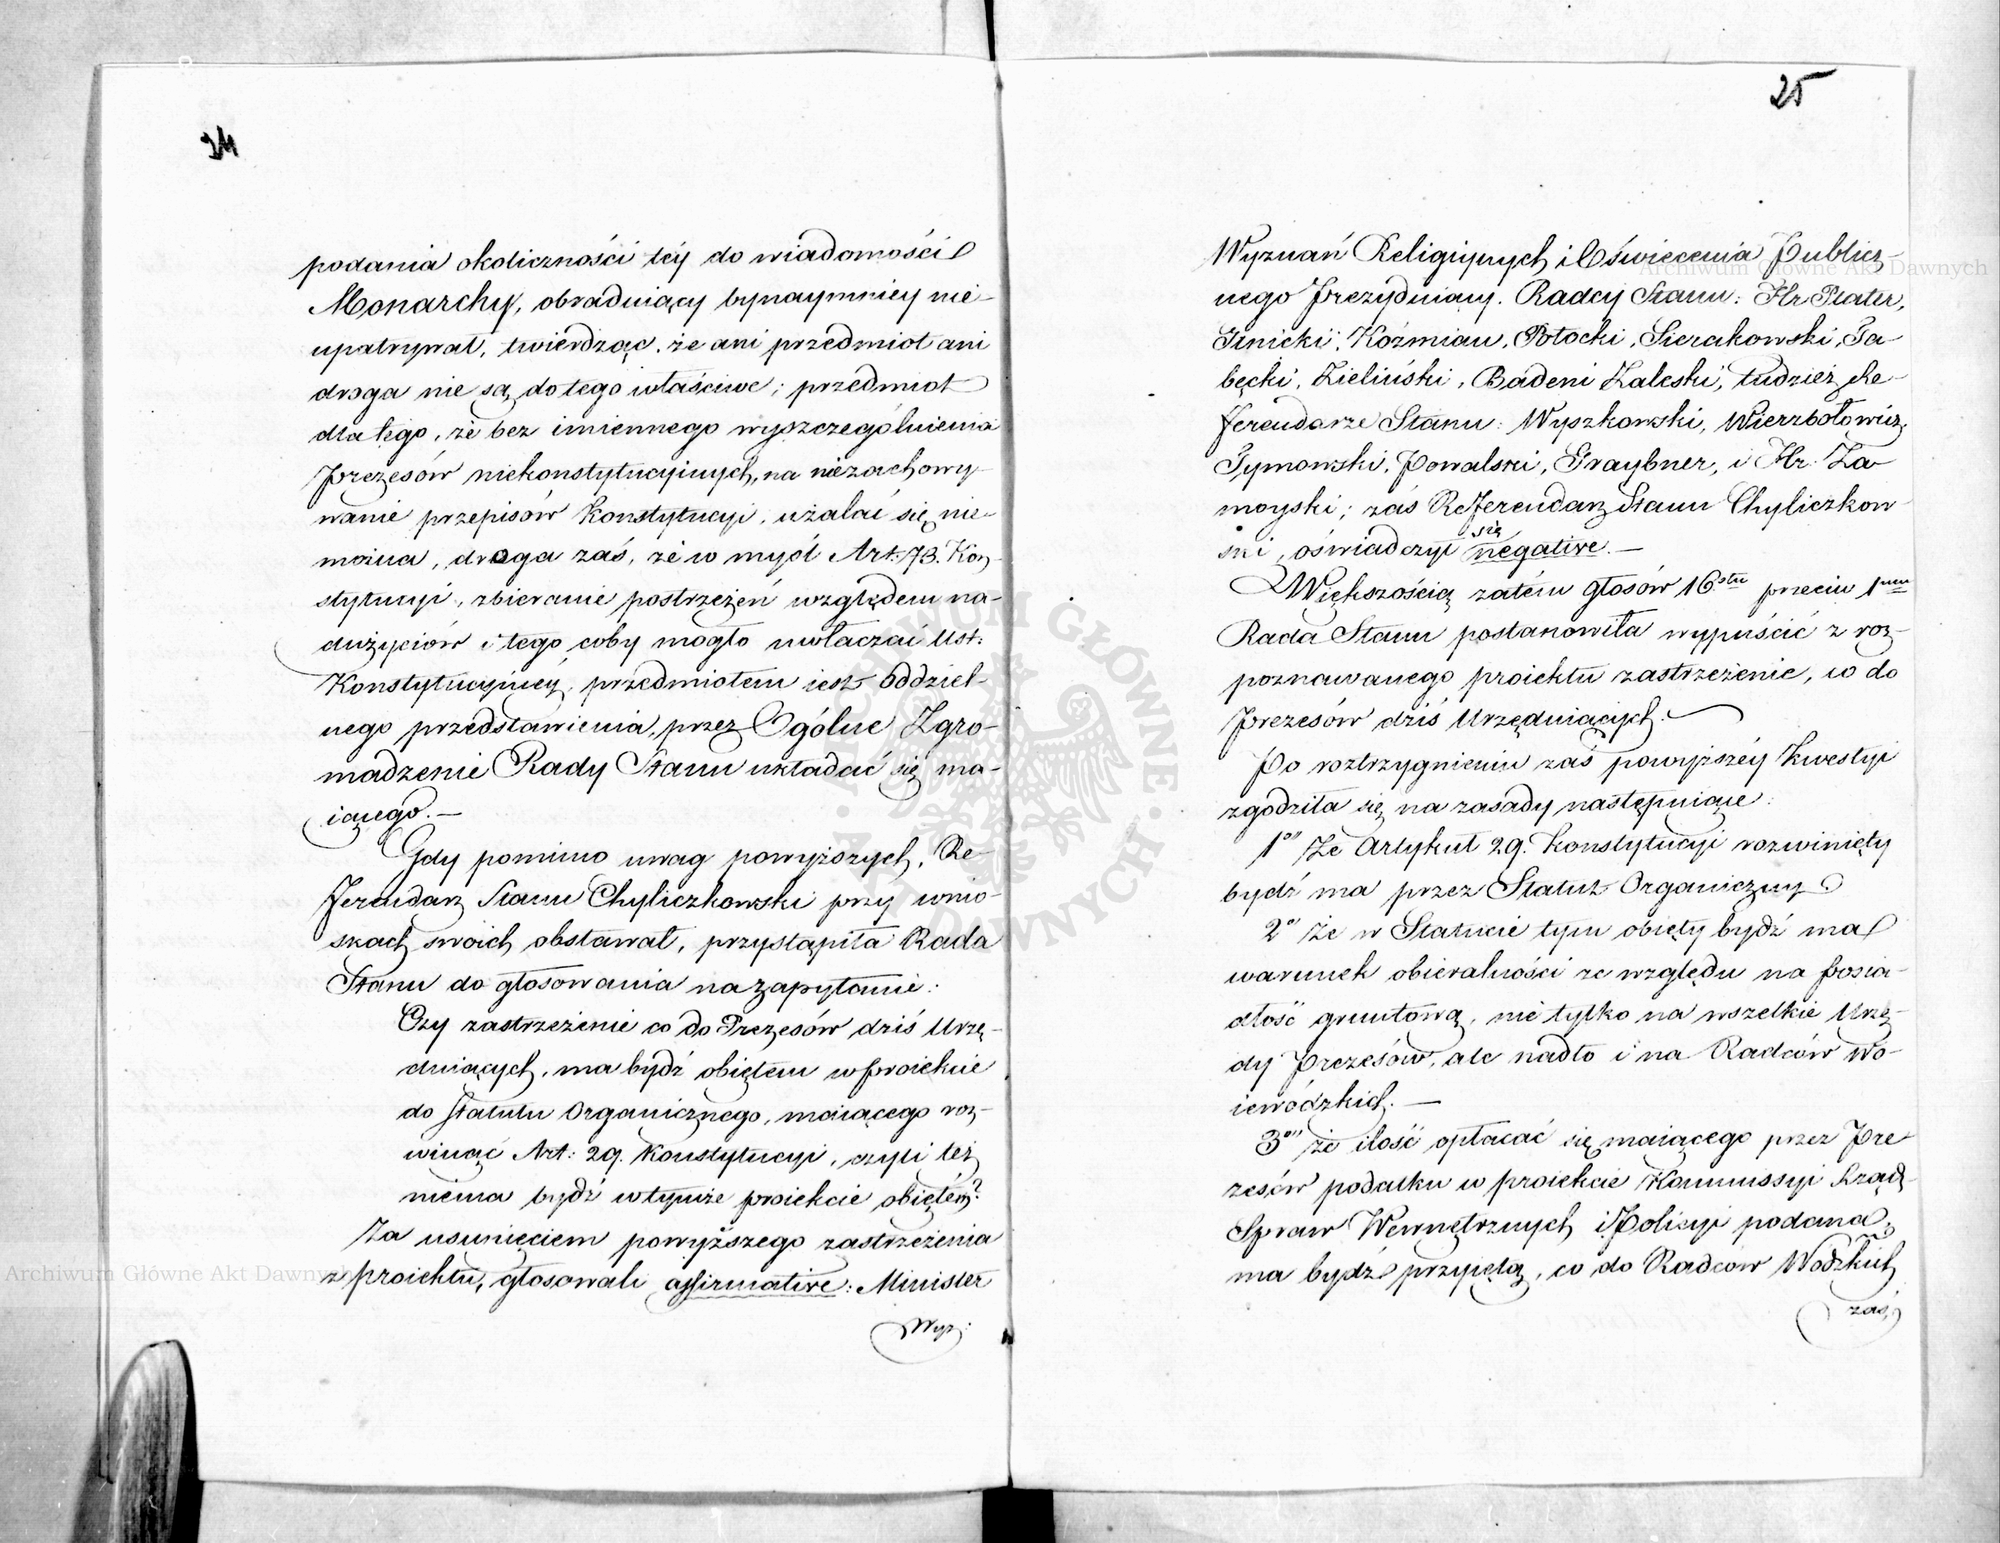 24
podania okoliczności téy do wiadomości
Monarchy, obraduiący bynaymniey nie-
upatrywał, twierdząc, że ani przedmiot ani
droga nie są do tego właściwe; przedmiot
dla tego, że bez imiennego wyszczególnienia
Prezesów niekonstytucyinych, na niezachowy-
wanie przepisów Konstytucyi, użalać się nie-
można, droga zaś, że w myśl Art: 73. Kon-
stytucyi, zbieranie postrzeżeń względem na-
dużyciów i tego coby mogło uwłaczać Ust:
Konstytucyinéy, przedmiotem iest oddziel-
nego przedstawienia, przez Ogólne Zgro-
madzenie Rady Stanu układać się ma-
iącego. —
Gdy pomimo uwag powyższych, Re-
ferendarz Stanu Chyliczkowski przy wnio-
skach swoich obstawał, przystąpiła Rada
Stanu do głosowania na zapytanie:
Czy zastrzeżenie co do Prezesów dziś Urzę-
duiących, ma bydź obiętem w proiekcie
do Statutu Organicznego, maiącego roz-
winąć Art: 29. Konstytucyi, czyli też
niema bydź w tymże proiekcie obiętém?
Za usunięciem powyższego zastrzeżenia
z proiektu, głosowali affirmative: Minister
Wyz:
25
Wyznań Religiynych i Oświecenia Publicz-
nego Prezyduiący. Radcy Stanu: Hr. Plater,
Lnicki, Koźmian, Potocki, Sierakowski, Ta-
bęcki, Zieliński, Badeni Zaleski, tudzież Re-
ferendarze Stanu: Wyszkowski, Wierzbołowicz,
Tymowski, Powalski, Graybner, i Hr. Za-
moyski; zaś Referendarz Stanu Chyliczkow-
ski, oświadczył się négative. —
Większością zatém głosów 16stu przeciw 1mu
Rada Stanu postanowiła wypuścić z roz-
poznawanego proiektu zastrzeżenie, co do
Prezesów dziś Urzęduiących.
Po roztrzygnieniu zaś powyższéy Kwestyi
zgodziła się na zasady następuiące:
1o Że Artykuł 29. Konstytucyi rozwinięty
bydź ma przez Statut Organiczny
2o Że w Statucie tym obięty bydź ma
warunek obieralności ze względu na posia-
dłość gruntową, nie tylko na wszelkie Urzę-
dy Prezesów, ale nadto i na Radców Wo-
iewódzkich. —
3o że ilość opłacać się maiącego przez Pre-
zesów podatku w proiekcie Kommissyi Rząd.
Spraw Wewnętrznych i Policyi podana,
ma bydź przyiętą, co do Radców Wódzkich
zaś,